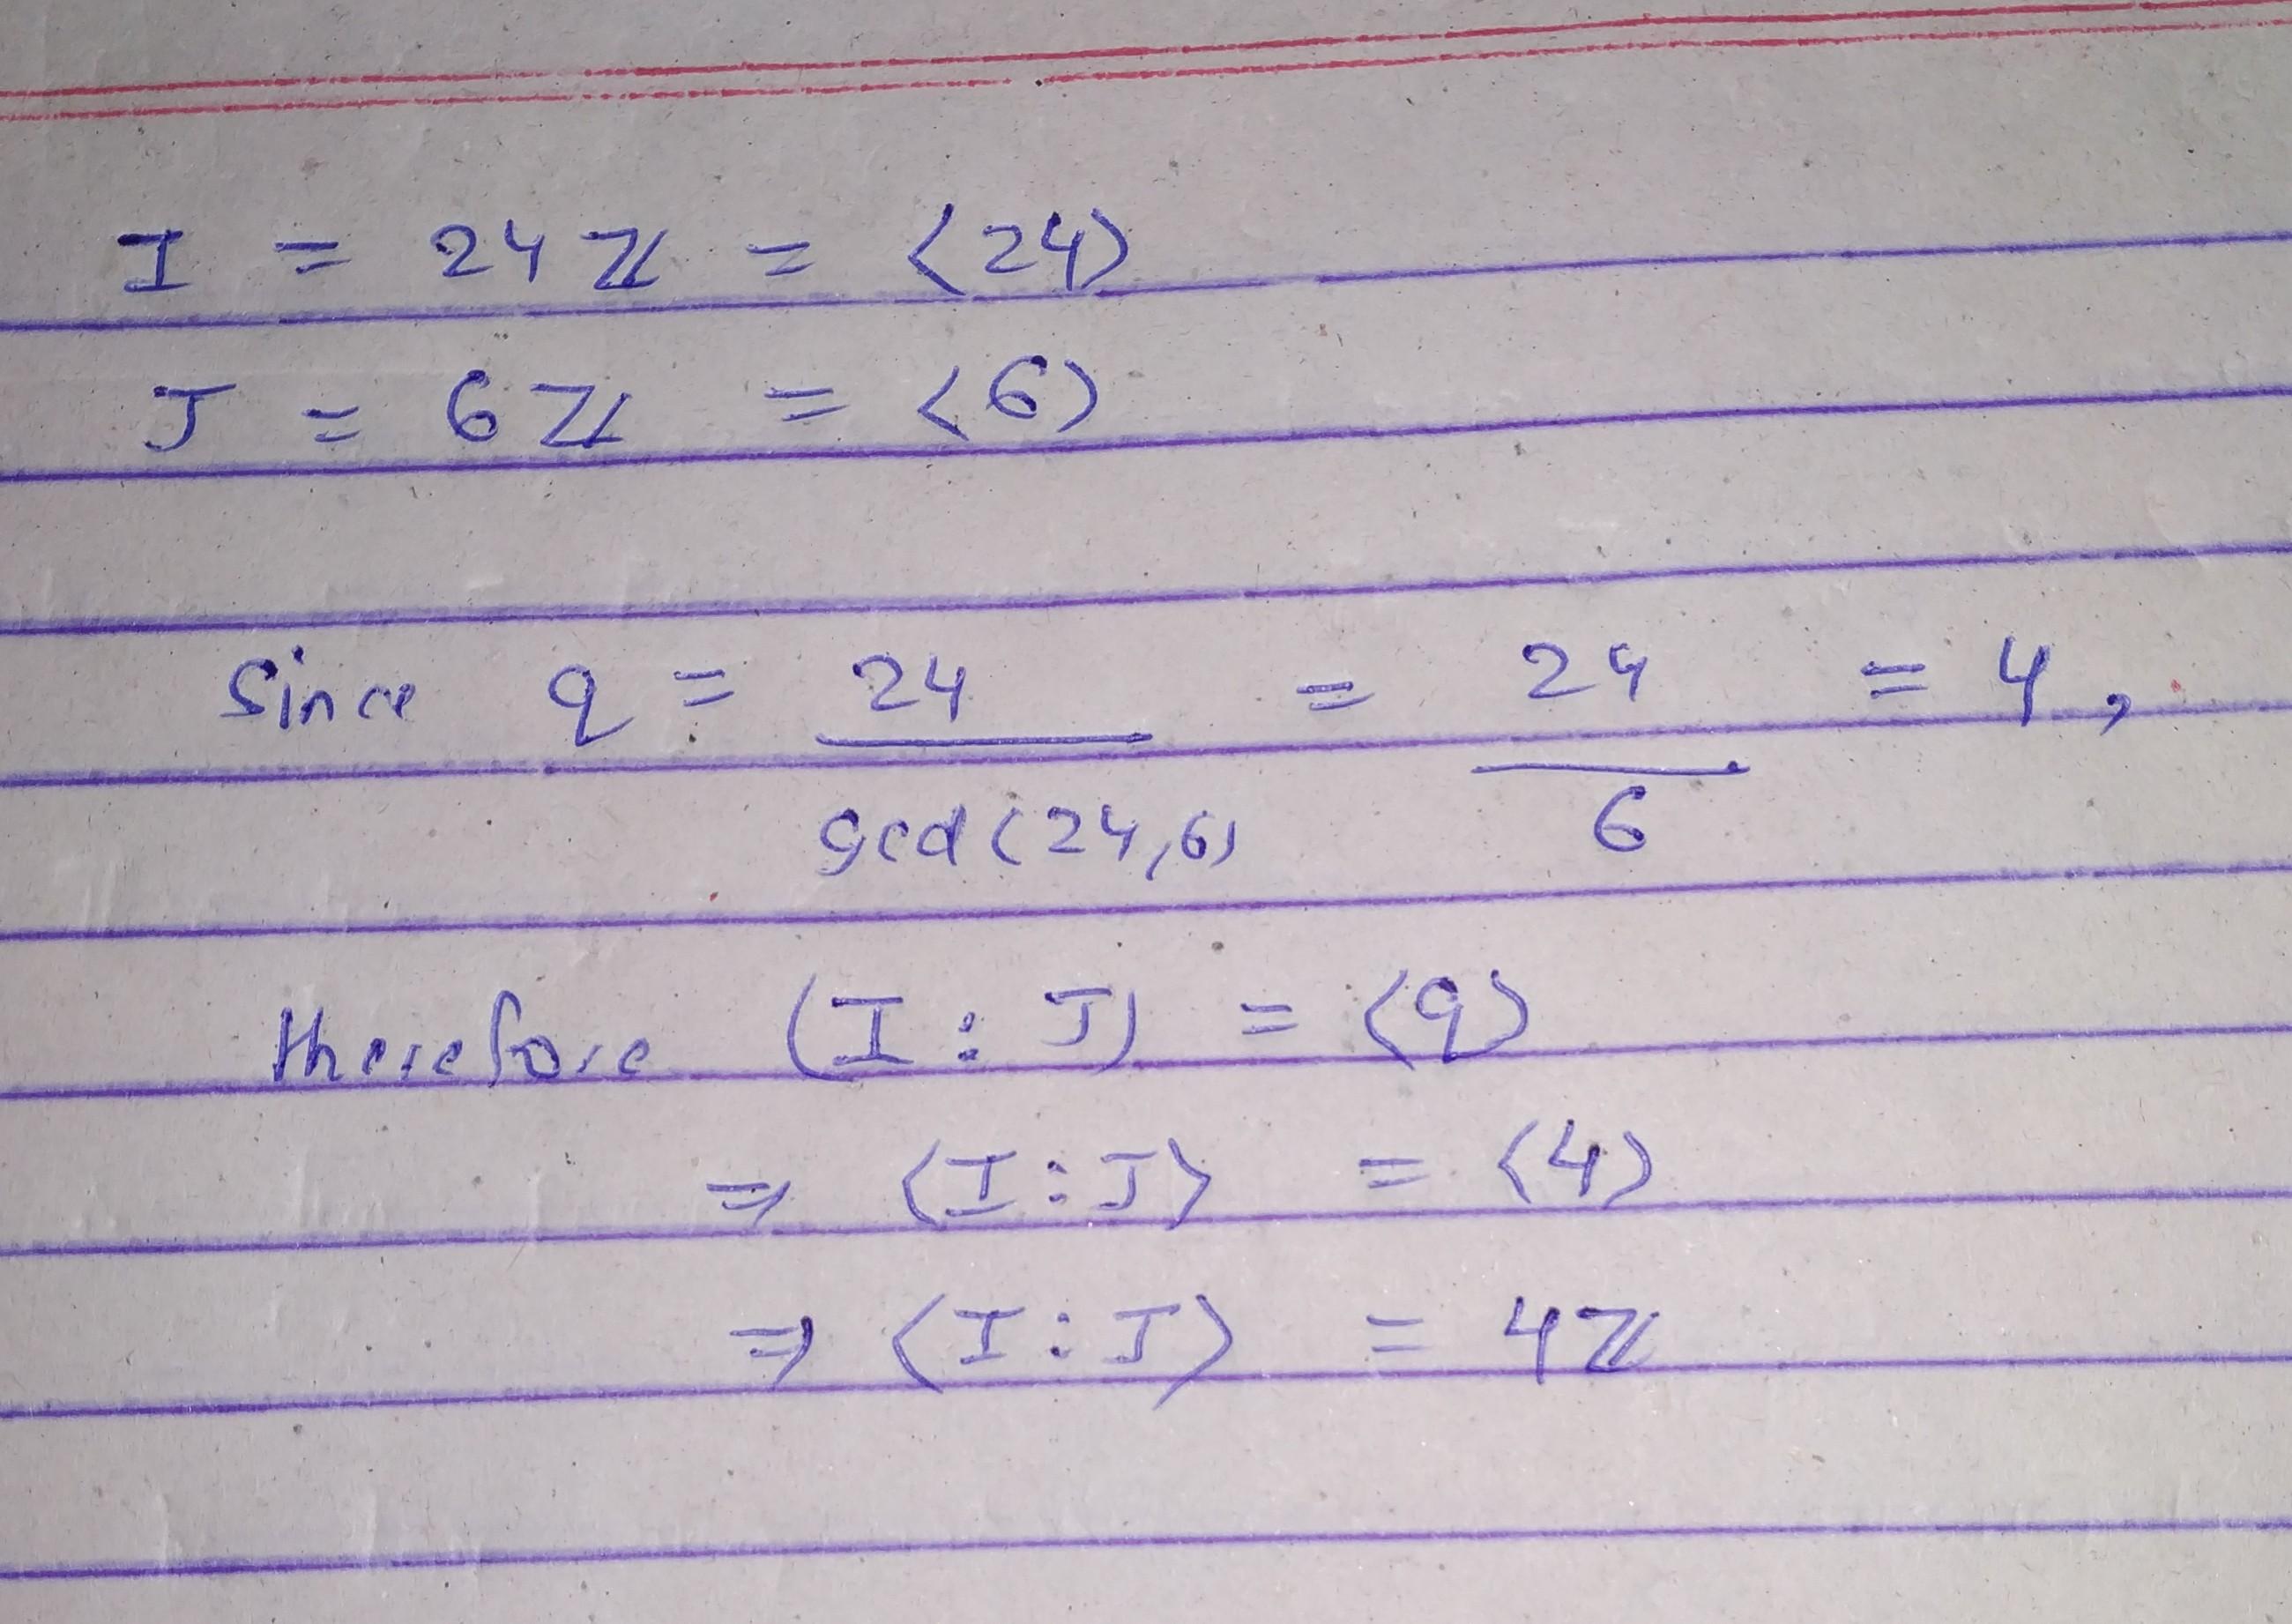 I = 24ℤ = ⟨24⟩
J = 6ℤ = ⟨6⟩
Since q = 24 / gcd(24,6) = 24 / 6 = 4,
therefore (I : J) = ⟨q⟩
⇒ ⟨I : J⟩ = ⟨4⟩
⇒ ⟨I : J⟩ = 4ℤ